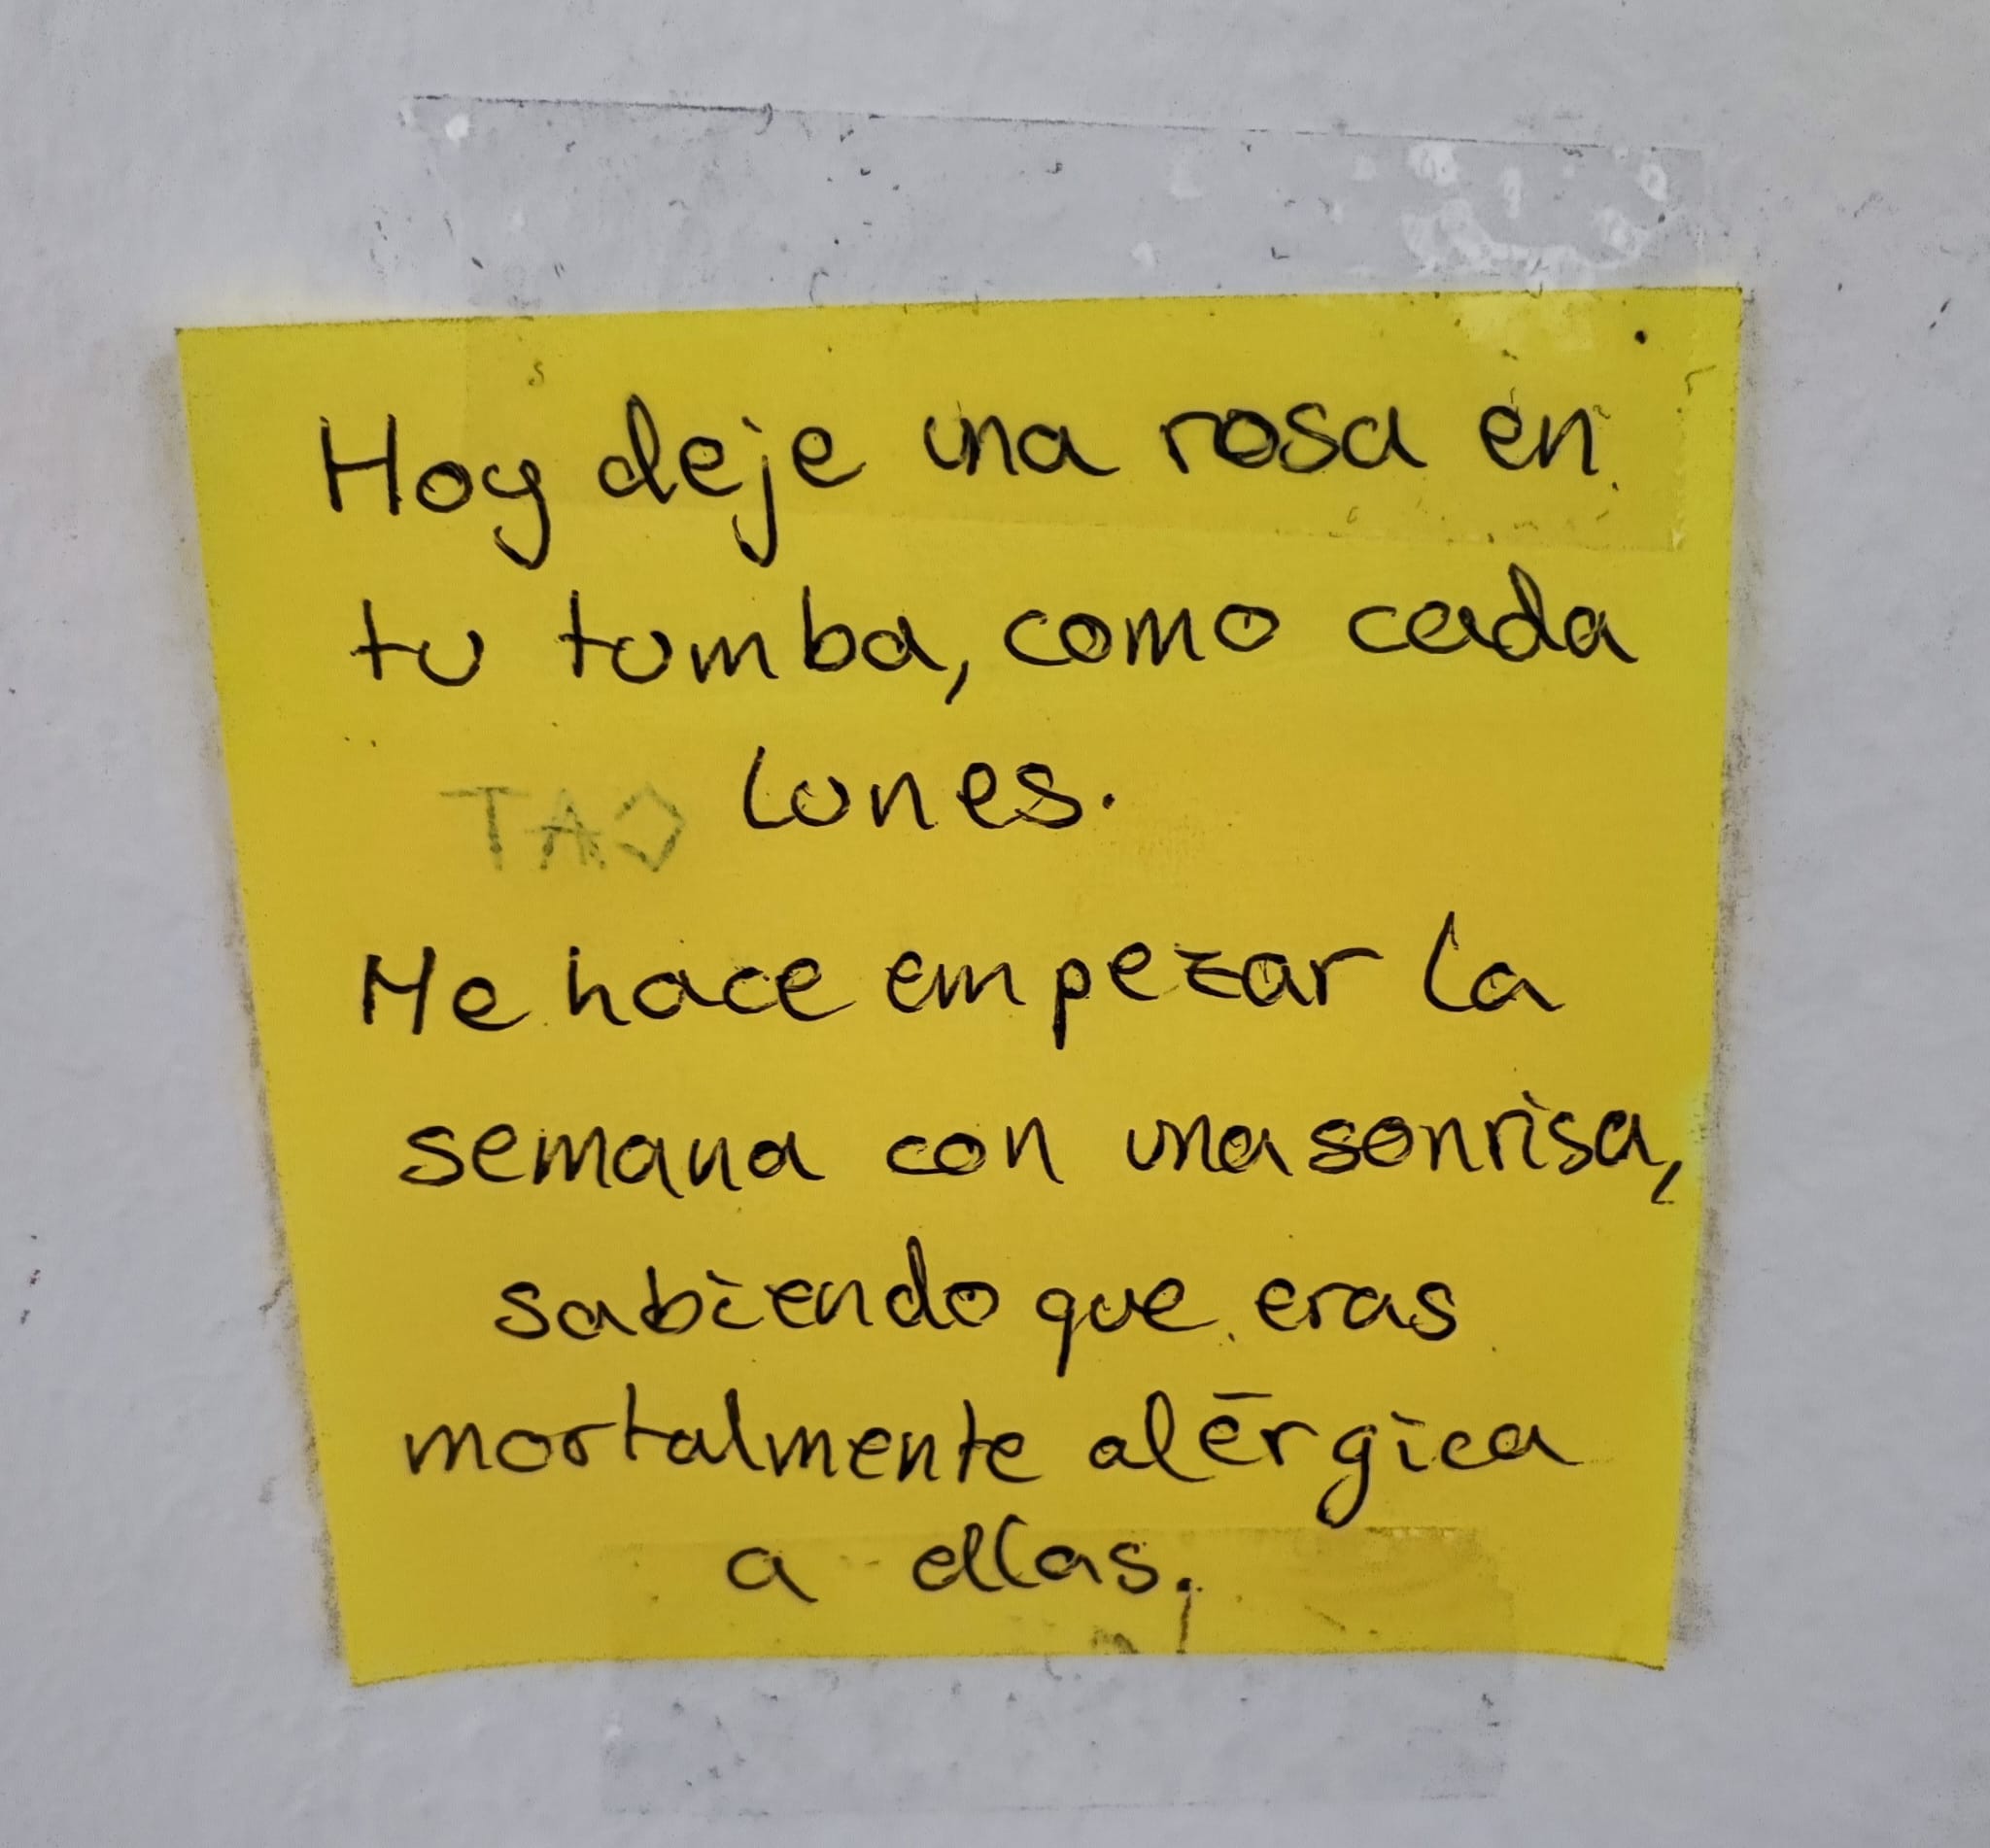 Hoy deje una rosa en
tu tumba, como cada
TAO lunes.
Me hace empezar la
semana con una sonrisa,
sabiendo que eras
mortalmente alérgica
a ellas.